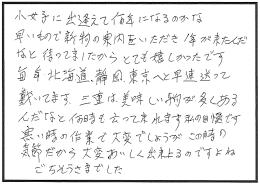 小女子に出逢えて何年になるのかな
早いもので新物の案内をいただき1年が来たんだ
なと待ってましたからとても嬉しかったです
毎年北海道、静岡、東京へと早速送って
戴いてます 三重は美味しい物が多くある
んだなと何時も云って来れます 私の自慢です
寒い時の作業で大変でしょうが この時の
気節だから大変おいしく出来上るのですよね
ごちそうさまでした